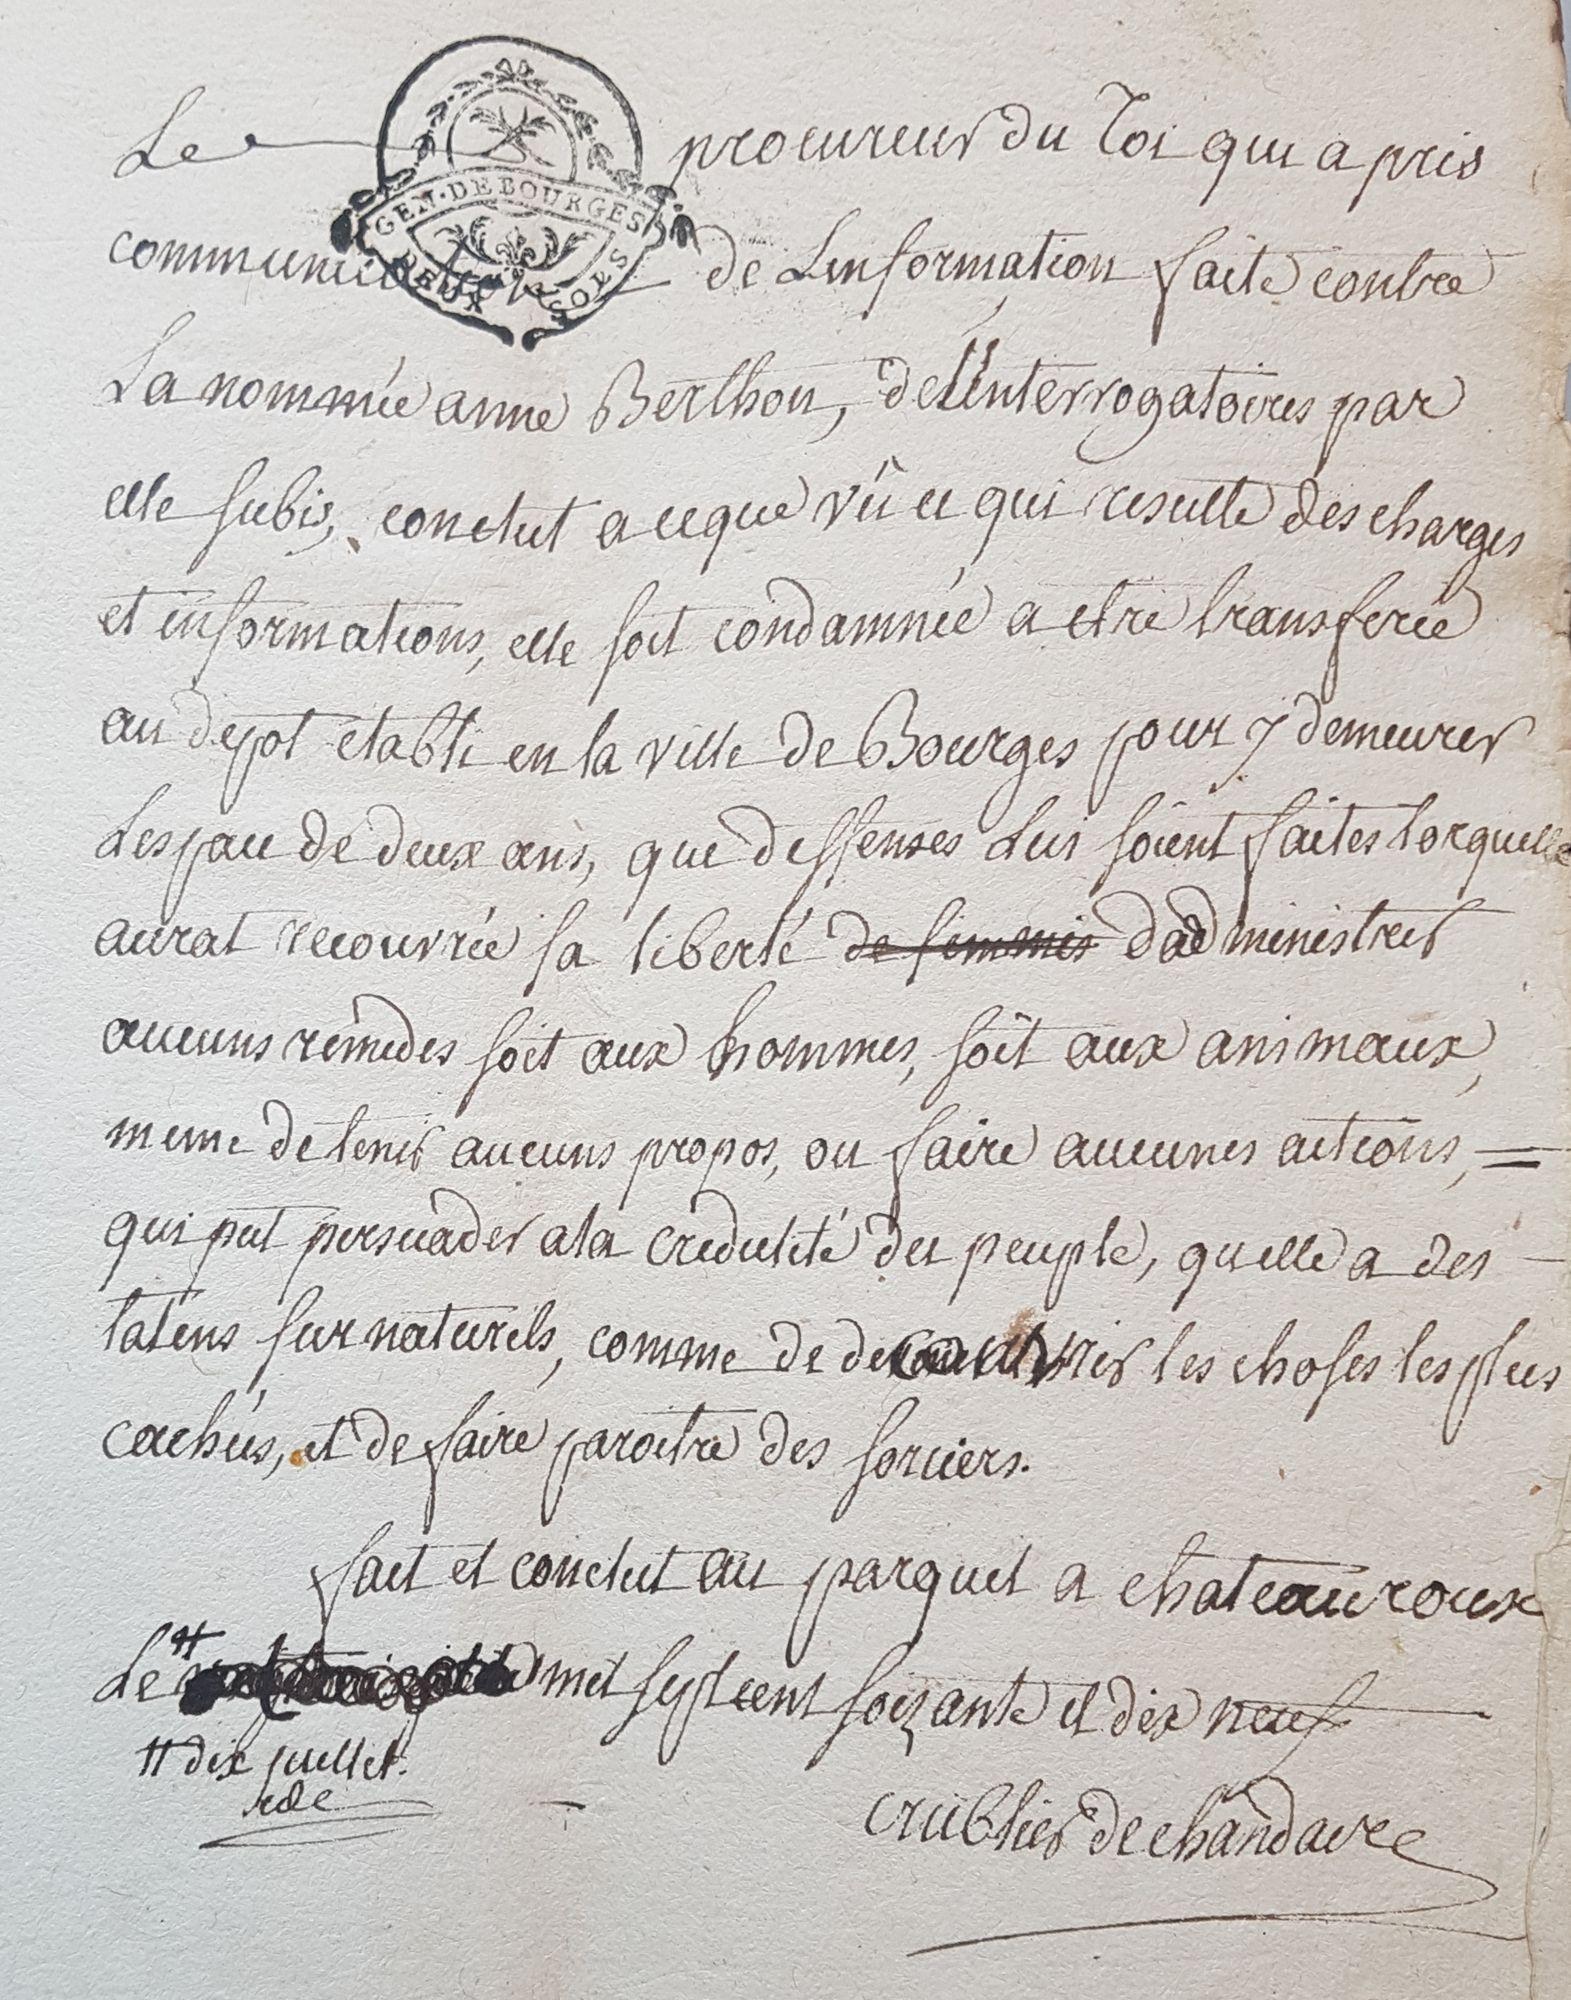 Le procureur du roi qui a pris
GEN · DE BOURGES
DEUX SOLS
communication de Linformation faite contre
La nommée anne Berthon, de Linterrogatoires par
elle subis, conclut a ceque vû ce qui resulte des charges
et informations, elle soit condamnée a etre transferée
au depot etabli en la ville de Bourges pour y demeurer
Lespace de deux ans, que deffenses Lui soient faites lorquelle
aurat recouvrée sa liberté de femmes dadministrer
aucuns remedes soit aux hommes, soit aux animaux,
meme de tenir aucuns propos, ou faire aucunes actions, =
qui put persuader ala credulité du peuple, quelle a des
talens surnaturels, comme de decouvrir les choses les plus
cachés, et de faire paroitre des sorciers.
fait et conclut au parquet a chateauroux
Le # mil sept cent soixante et dix neuf
# dix juillet.
cdc
crublier de chandaire